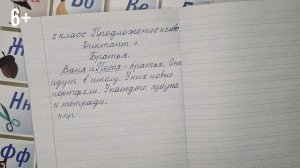 6+
2 класс Предложение и слово
Диктант 1.
Братья.
Ваня и Петя - братья. Они
идут в школу. У них новые
портфели. У каждого азбука
и тетради.
4 пр.